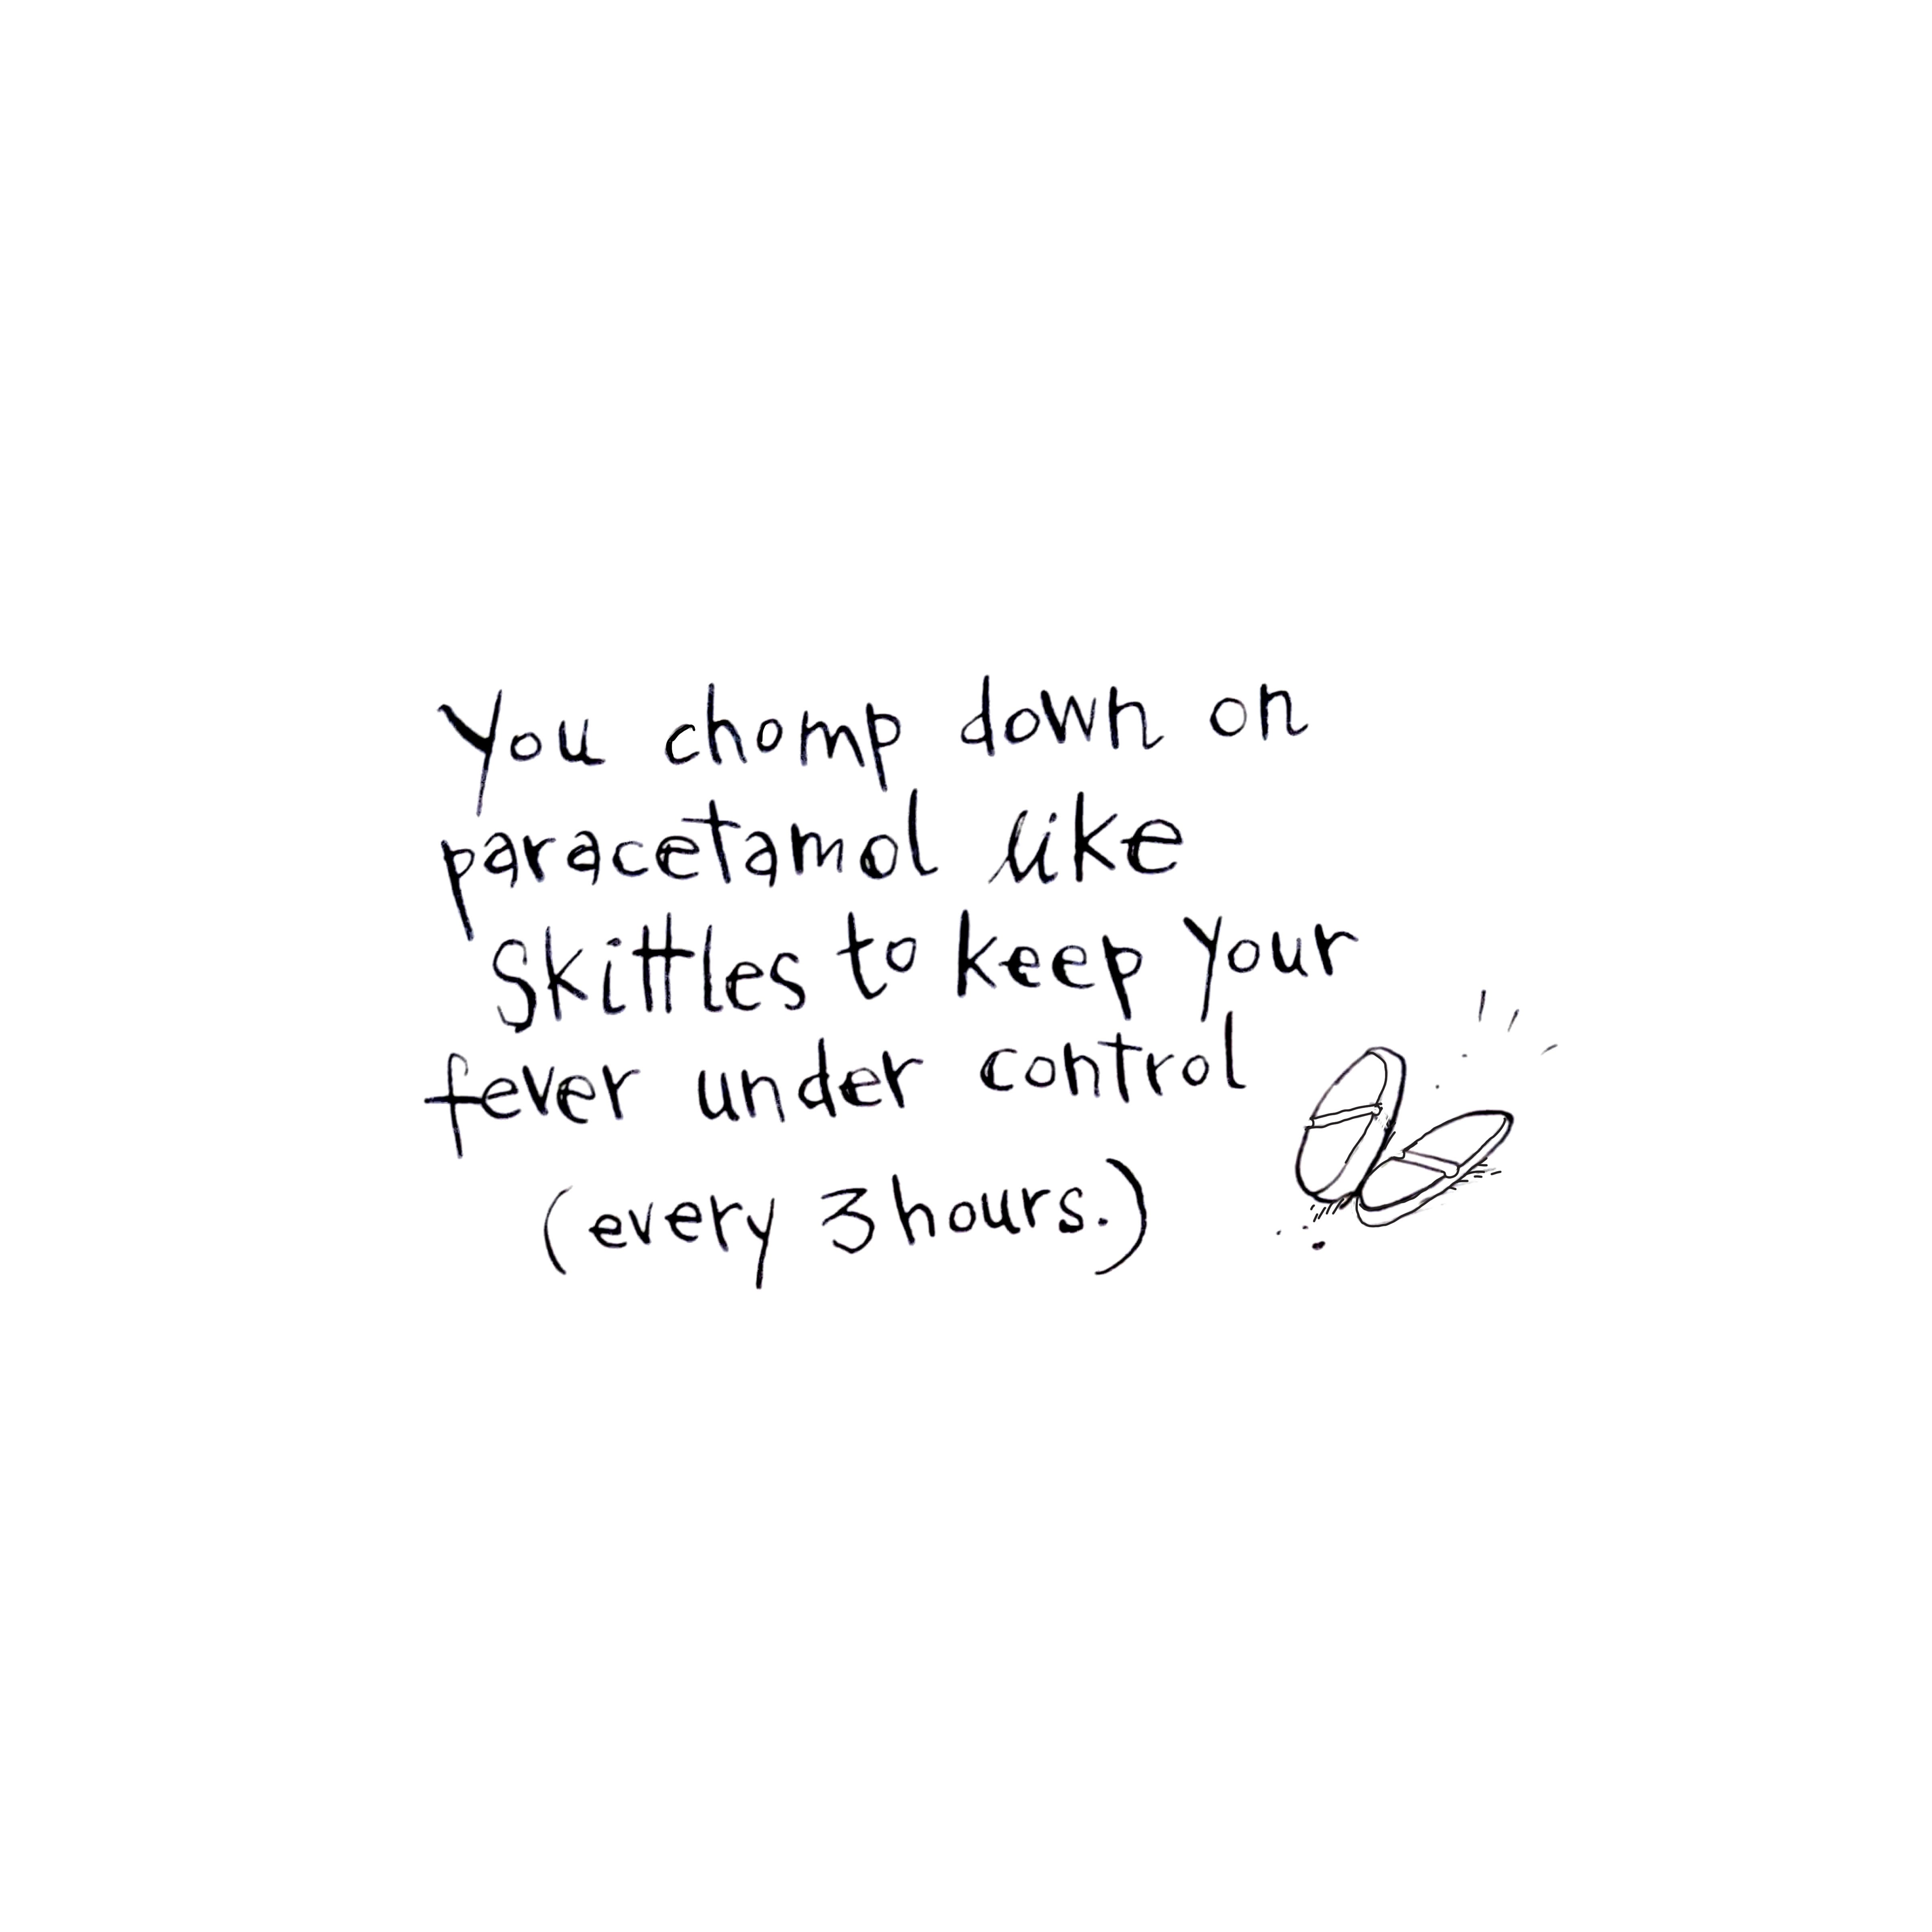 You chomp down on
paracetamol like
Skittles to keep your
fever under control
(every 3 hours.)